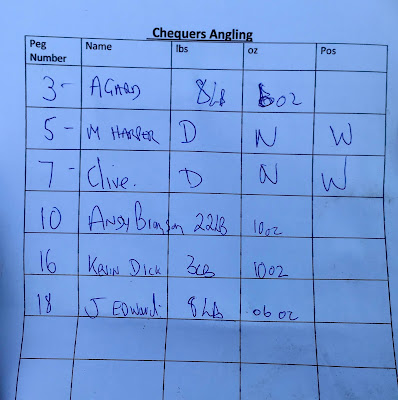 Chequers Angling
Peg Number Name lbs oz Pos
3 - A GARD 8LB oz
5 - M HARPER D N W
7 - Clive. D N W
10 Andy 22LB 10oz
16 Kevin Dick 3LB 10oz
18 J EDWARD 8LB 06 oz